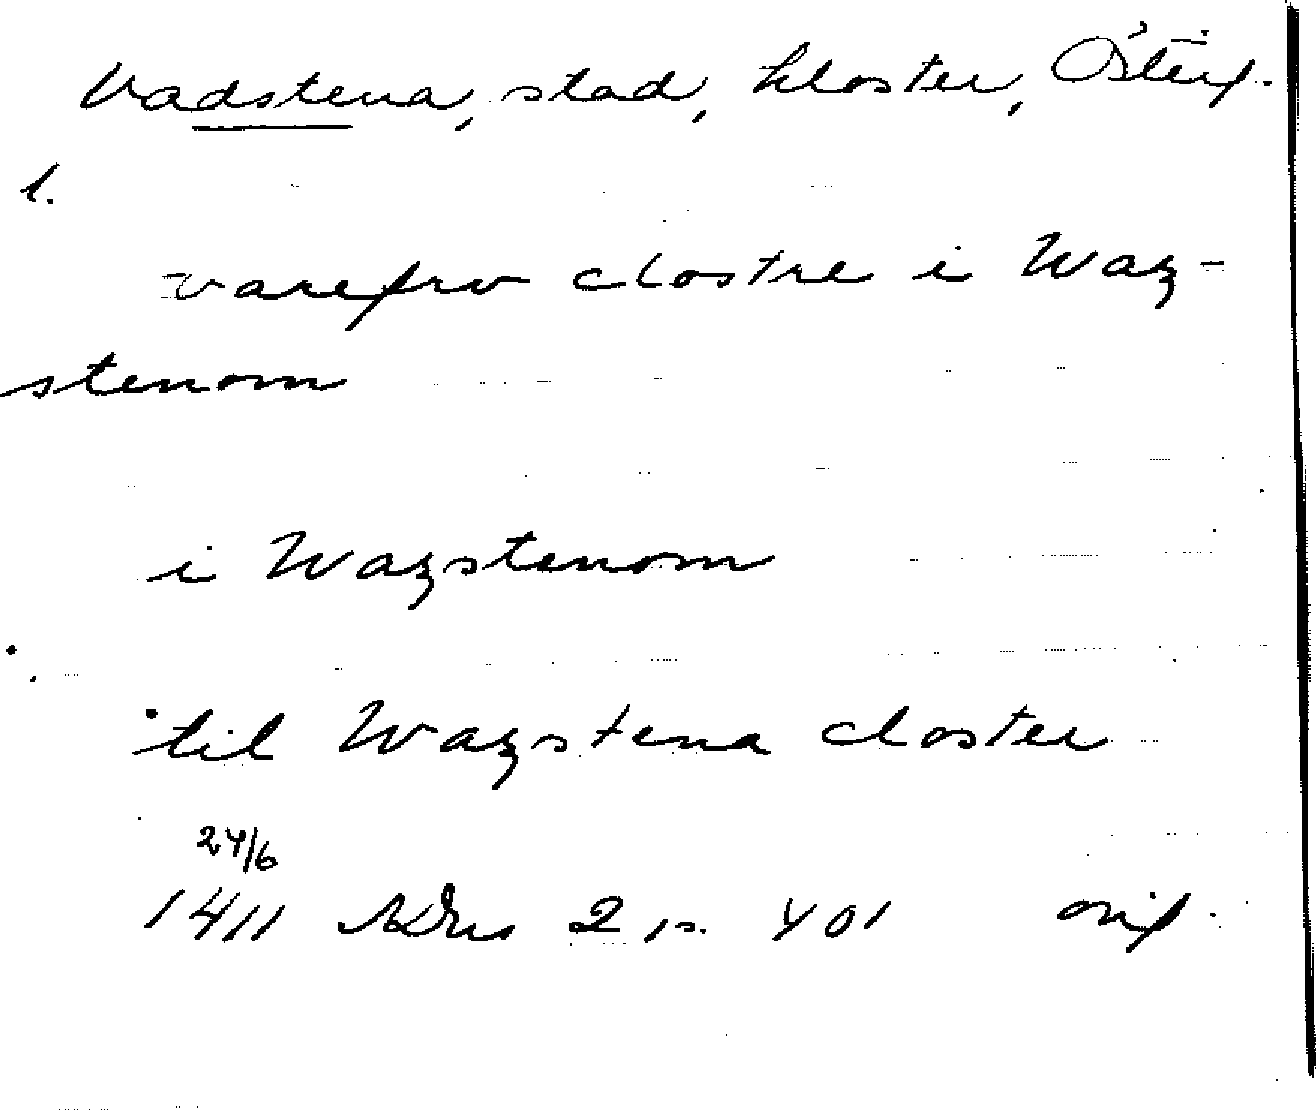 Vadstena, stad, kloster, Österg.
1.
varefru clostre i Waz-
stenom
i Wazstenom
til Wazstena closter
24/6
1411 SDns 2 s. 401 orig.